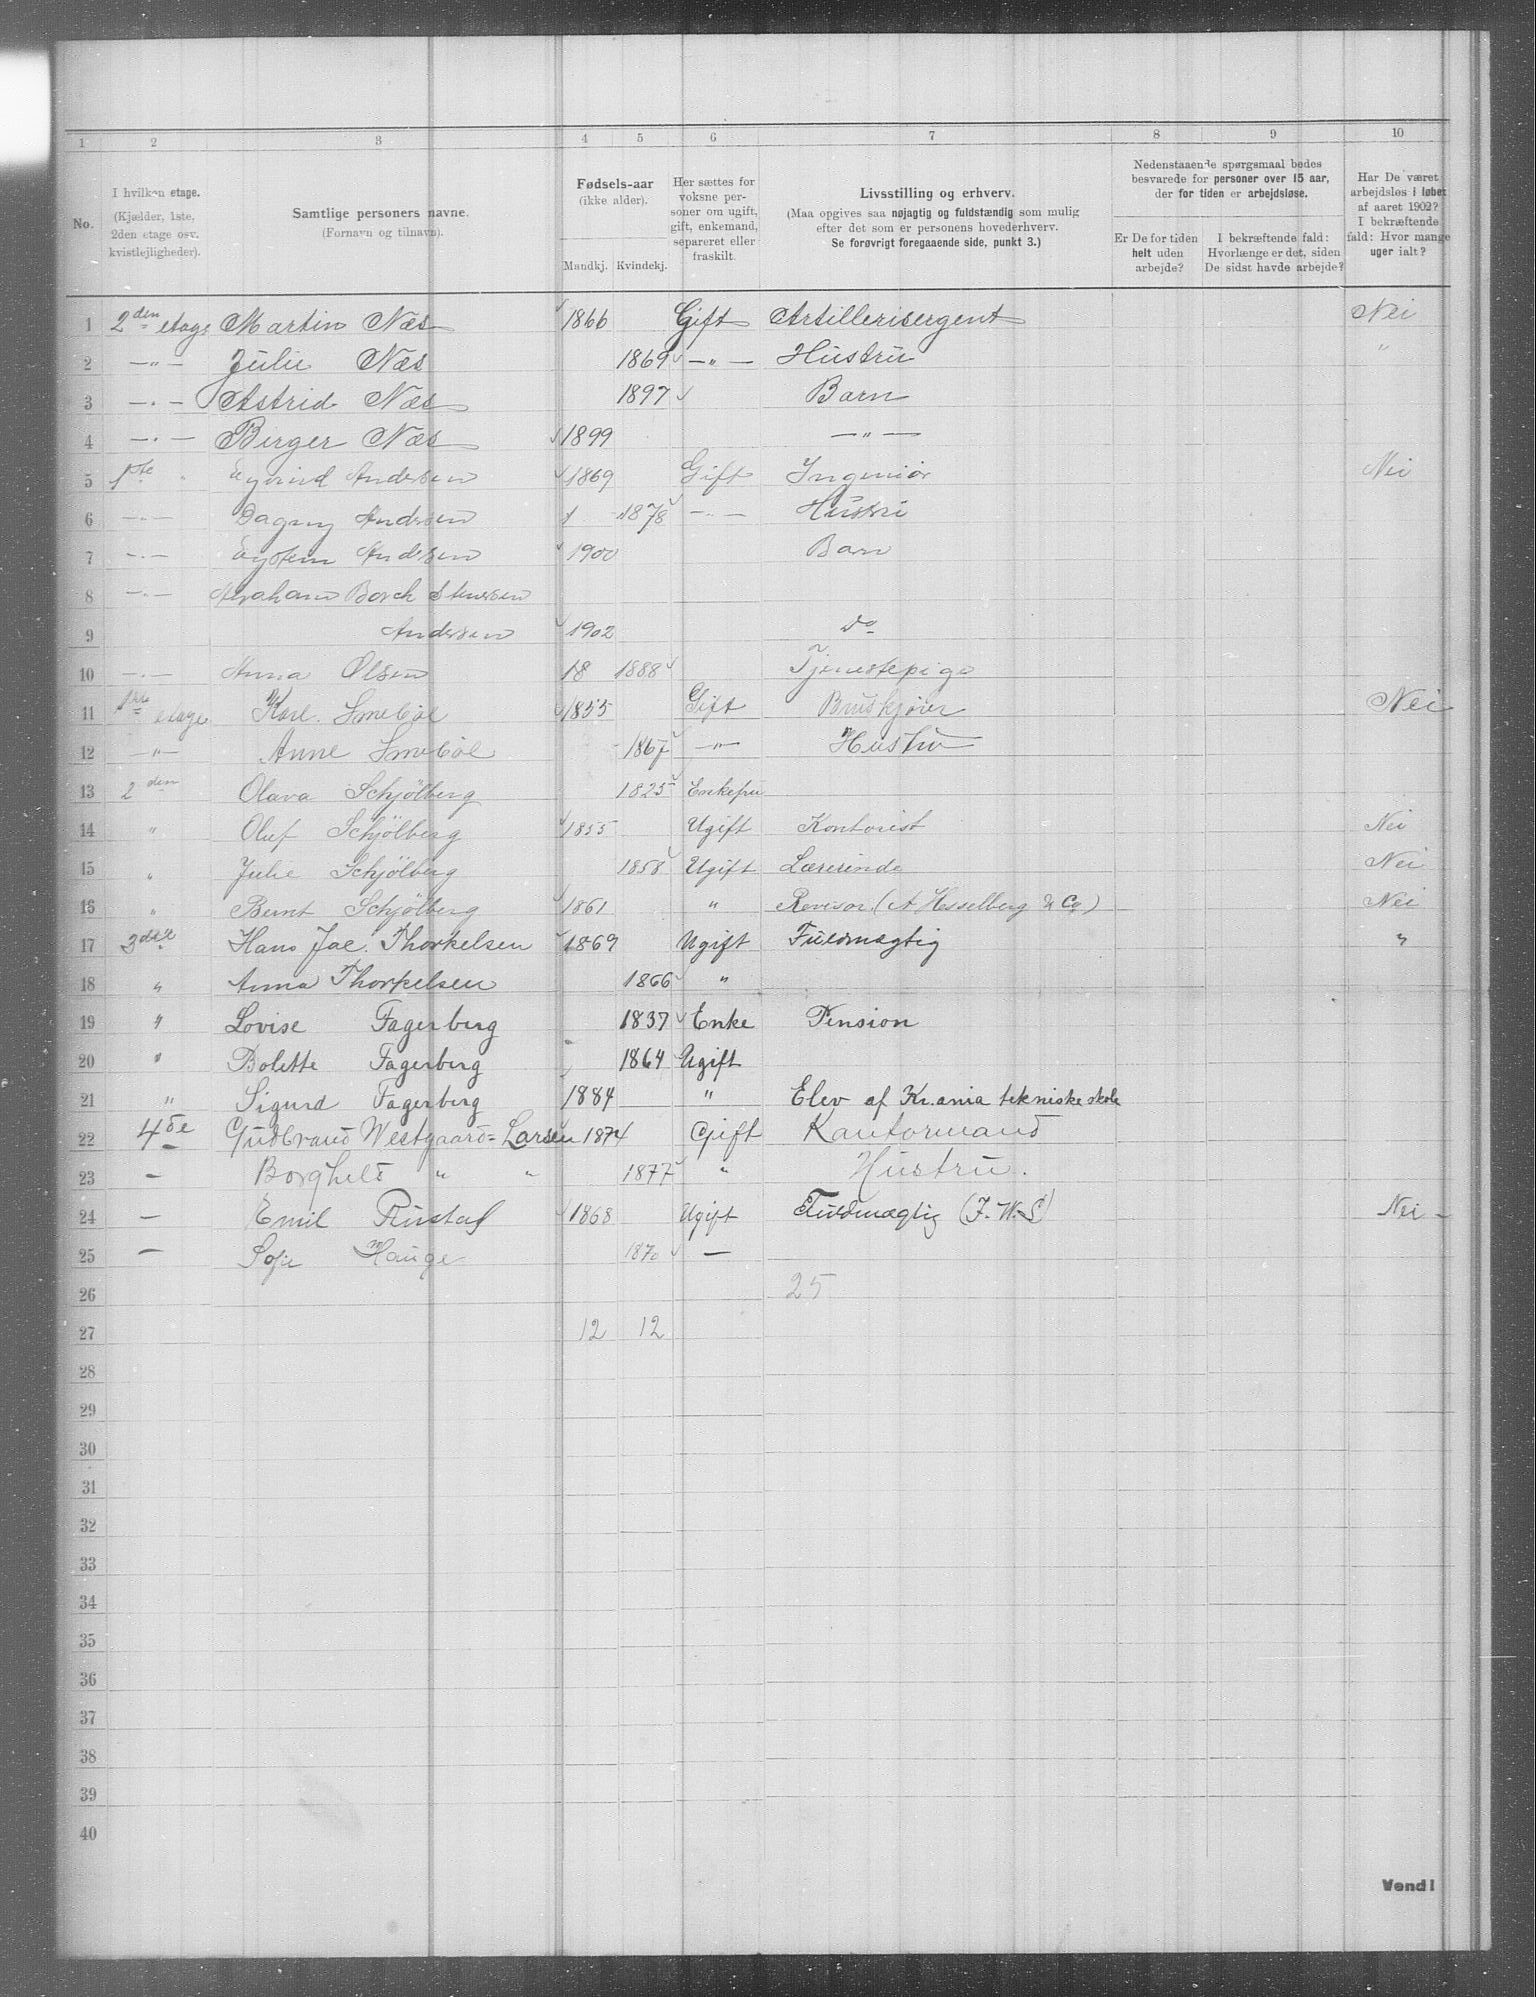 1 2 3 4 5 6 7 8 9 10
No.
I hvilken etage.
(Kjælder, 1ste,
2den etage osv.
kvistlejligheder).
Samtlige personers navne.
(Fornavn og tilnavn).
Fødsels-aar
(ikke alder).
Mandkj. Kvindekj.
Her sættes for
voksne per-
soner om ugift,
gift, enkemand,
separeret eller
fraskilt.
Livsstilling og erhverv.
(Maa opgives saa nøjagtig og fuldstændig som mulig
efter det som er personens hovederhverv.
Se forøvrigt foregaaende side, punkt 3.)
Nedenstaaende spørgsmaal bedes
besvarede for personer over 15 aar,
der for tiden er arbejdsløse.
Er De for tiden
helt uden
arbejde?
I bekræftende fald:
Hvorlænge er det, siden
De sidst havde arbejde?
Har De været
arbejdsløs i løbet
af aaret 1902?
I bekræftende
fald: Hvor mange
uger ialt?
1 2den etage Martin Næs 1866 Gift Artillerisergent Nei
2 —"— Julie Næs 1869 —"— Hustru "
3 —"— Astrid Næs 1897 Barn
4 —"— Birger Næs 1899 —"—
5 1ste " Eyvind Andersen 1869 Gift Ingeniør Nei
6 —"— Dagny Andersen 1878 —"— Hustru
7 —"— Eystein Andersen 1900 Barn
8 —"— Abraham Borch
9 Andersen 1902 Do
10 —"— Anna Olsen 18 1888 Tjenestepige
11 1ste etage Karl Smebøl 1855 Gift Bruskjører Nei
12 —"— Anne Smebøl 1867 —"— Hustru
13 2den Olava Schjölberg 1825 Enkefru
14 " Oluf Schjölberg 1855 Ugift Kontorist Nei
15 " Julie Schjölberg 1858 Ugift Lærerinde Nei
16 " Bernt Schjölberg 1861 " Revisor (A Hesselberg & Co) Nei
17 3die Hans Jac. Thorkelsen 1869 Ugift Fuldmægtig "
18 " Anna Thorkelsen 1866 "
19 " Lovise Fagerberg 1837 Enke Pension
20 " Bolette Fagerberg 1864 Ugift
21 " Sigurd Fagerberg 1884 " Elev af Kr.ania tekniske skole
22 4de Gudbrand Westgaard-Larsen 1874 Gift Kantormand
23 — Borghild " " 1877 " Hustru.
24 — Emil Rustad 1868 Ugift Fuldmægtig (J.W.S) Nei —
25 — Sofie Hauge 1870 —
26 25
27 12 12
28
29
30
31
32
33
34
35
36
37
38
39
40
Vend!